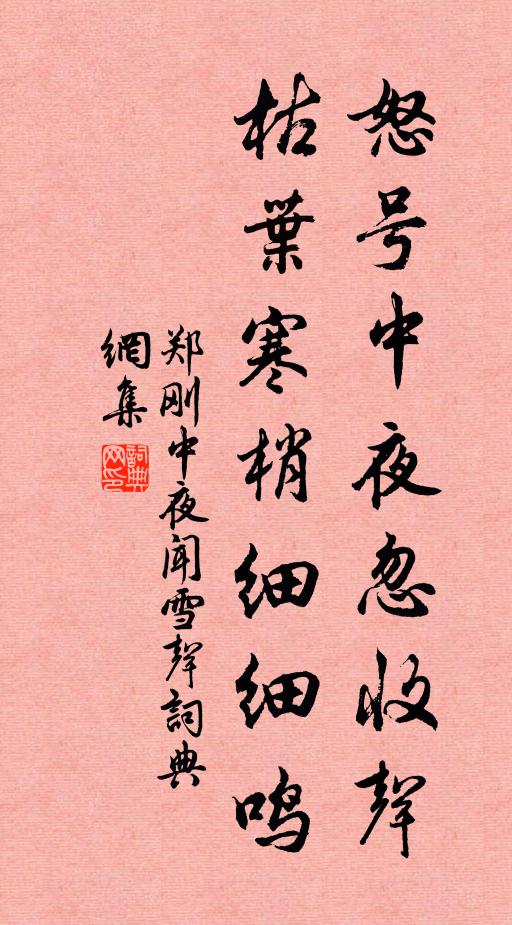 怒号中夜忽收聲
枯葉寒梢细细鸣
郑刚中夜闻雪聲詞典
網集
詞典
网印